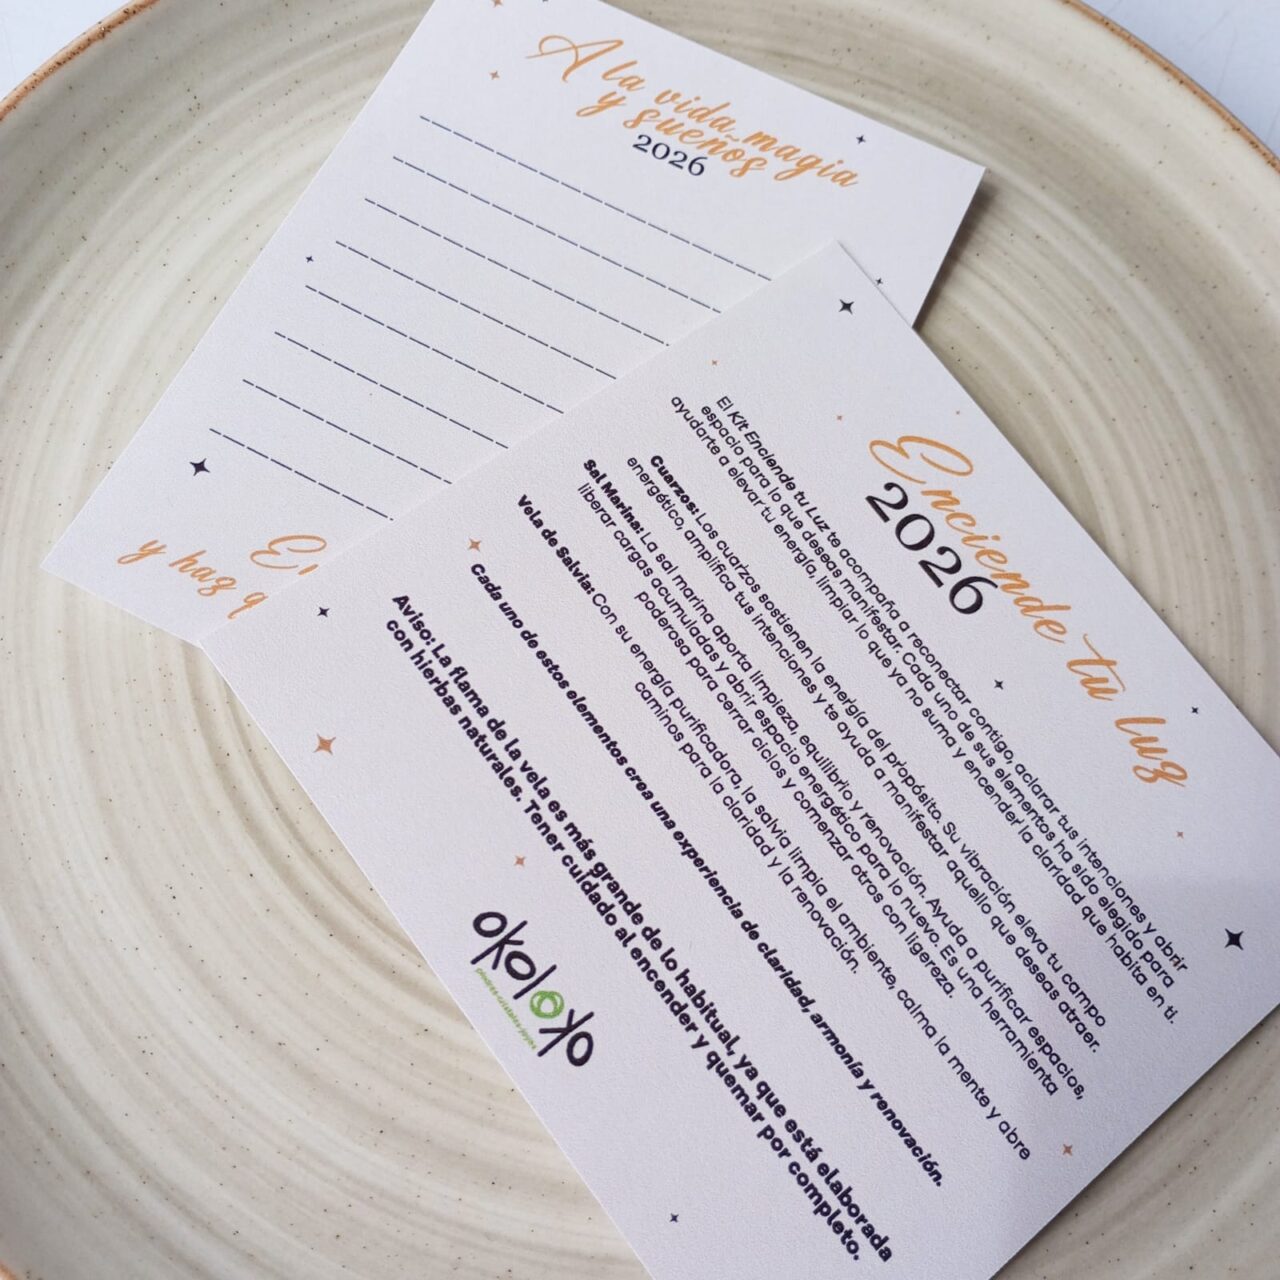 A la vida, magia
y sueños
2026
y haz q
Enciende tu luz
2026
El Kit Enciende tu Luz te acompaña a reconectar contigo, aclarar tus intenciones y abrir
espacio para lo que deseas manifestar. Cada uno de sus elementos ha sido elegido para
ayudarte a elevar tu energía, limpiar lo que ya no suma y encender la claridad que habita en ti.
Cuarzos: Los cuarzos sostienen la energía del propósito. Su vibración eleva tu campo
energético, amplifica tus intenciones y te ayuda a manifestar aquello que deseas atraer.
Sal Marina: La sal marina aporta limpieza, equilibrio y renovación. Ayuda a purificar espacios,
liberar cargas acumuladas y abrir espacio energético para lo nuevo. Es una herramienta
poderosa para cerrar ciclos y comenzar otros con ligereza.
Vela de Salvia: Con su energía purificadora, la salvia limpia el ambiente, calma la mente y abre
caminos para la claridad y la renovación.
Cada uno de estos elementos crea una experiencia de claridad, armonía y renovación.
Aviso: La flama de la vela es más grande de lo habitual, ya que está elaborada
con hierbas naturales. Tener cuidado al encender y quemar por completo.
okoloko
piedras·cristales·joyas